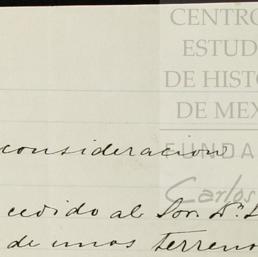 CENTRO
ESTUD
DE HISTO
DE MEX
FUNDA
Carlos
consideracion
cedido al Sor. D.
de unos terreno